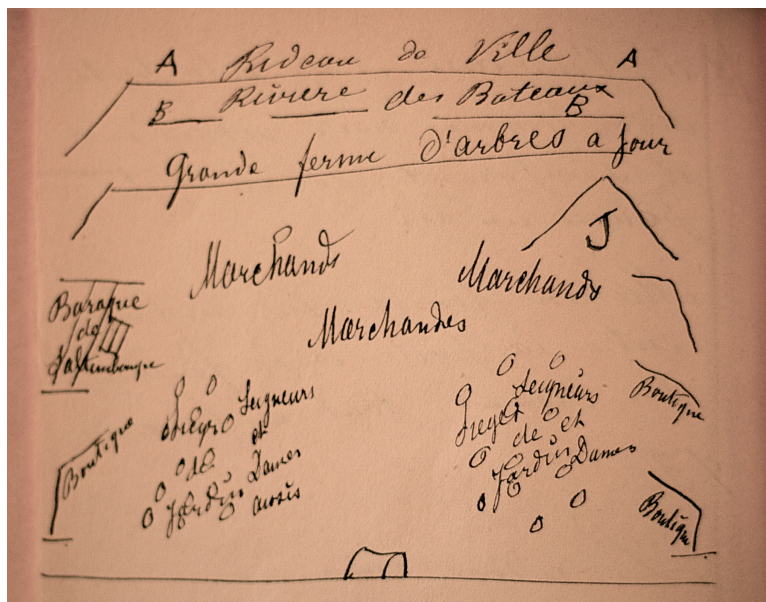 A Rideau de Ville A
B Rivière des Bateaux B
Grande ferme d'arbres a Jour
J
Marchands
Marchands
Marchandes
Baraque
de
Saltimbanque
Boutique
Sieges Seigneurs
de et
Jardin Dames
assis
Sieges Seigneurs
de et
Jardin Dames
Boutique
Boutique